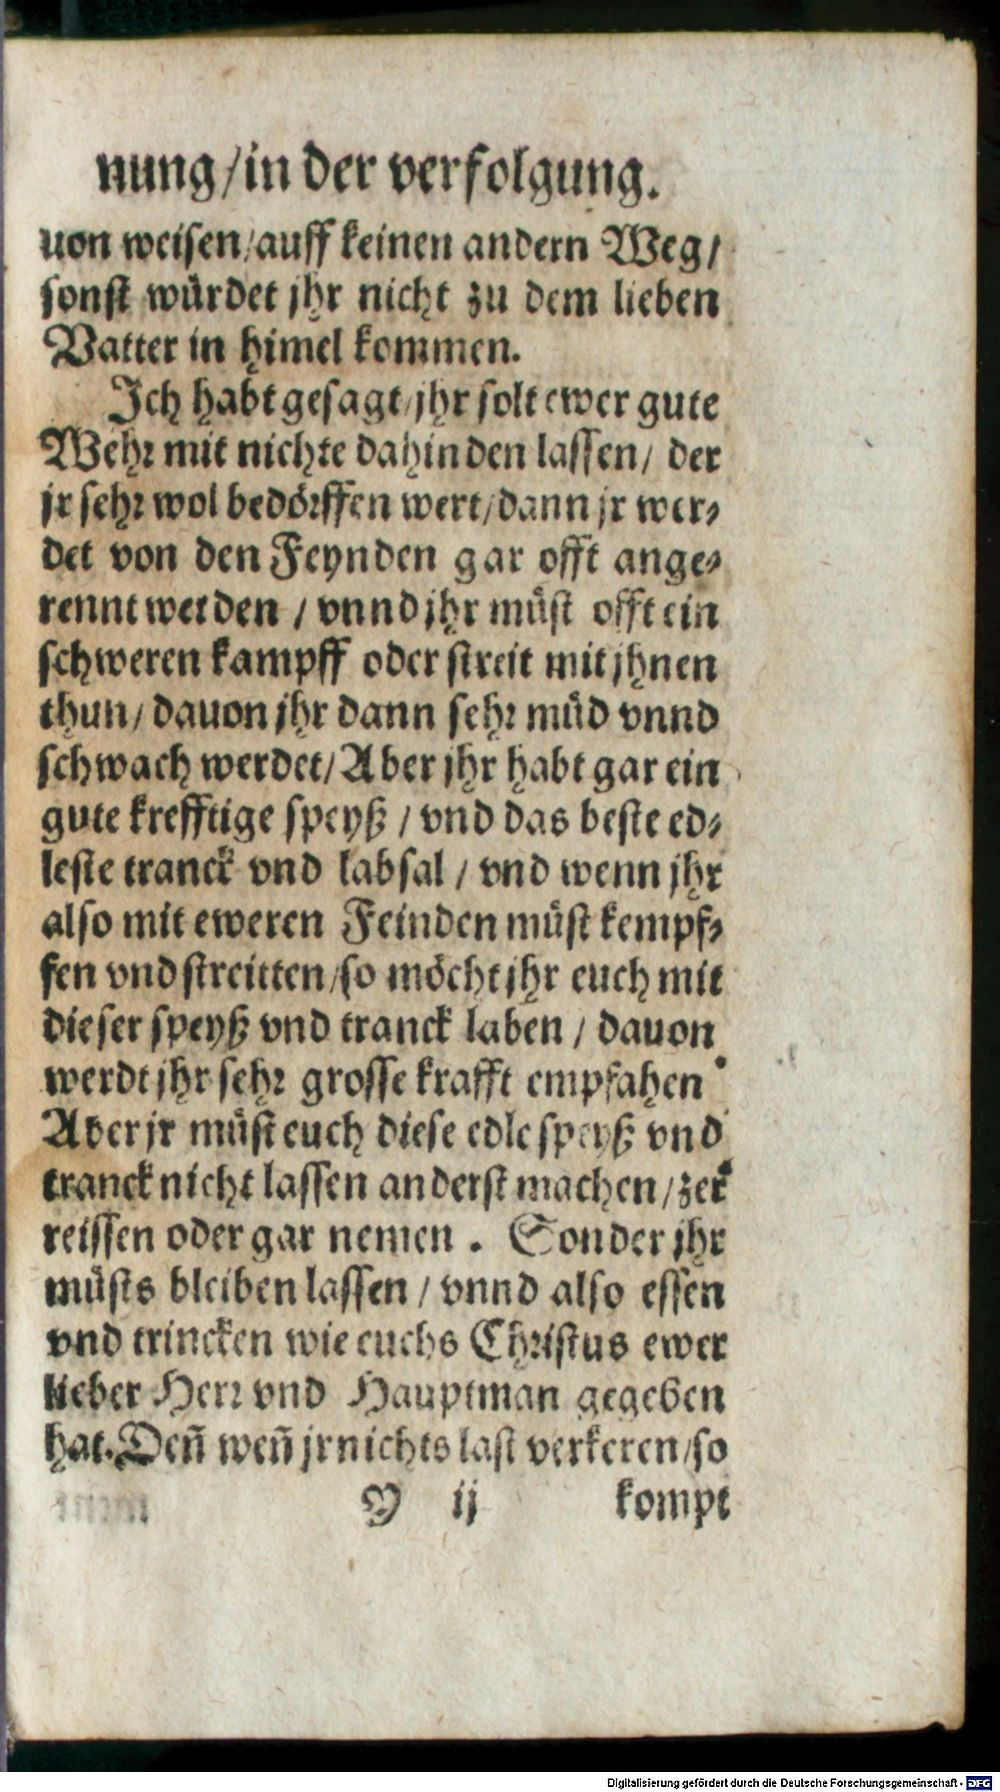 nung/in der verfolgung.
uon weisen/auff keinen andern Weg/
sonst würdet jhr nicht zu dem lieben
Vatter in himel kommen.
Ich habt gesagt/jhr solt ewer gute
Wehr mit nichte dahinden lassen/ der
jr sehr wol bedörffen wert/dann jr wer-
det von den Feynden gar offt ange-
rennt werden / vnnd jhr müst offt ein
schweren kampff oder streit mit jhnen
thun/ dauon jhr dann sehr müd vnnd
schwach werdet/Aber jhr habt gar ein
gute krefftige speyß / vnd das beste ed-
leste tranck vnd labsal / vnd wenn jhr
also mit eweren Feinden müst kempf-
fen vnd streitten/so möcht jhr euch mit
dieser speyß vnd tranck laben / dauon
werdt jhr sehr grosse krafft empfahen
Aber jr müst euch diese edle speyß vnd
tranck nicht lassen anderst machen/zer
reissen oder gar nemen . Sonder jhr
müsts bleiben lassen / vnnd also essen
vnd trincken wie euchs Christus ewer
lieber Herr vnd Hauptman gegeben
hat. Deñ weñ jr nichts last verkeren/so
Y ij kompt
Digitalisierung gefördert durch die Deutsche Forschungsgemeinschaft - DFG